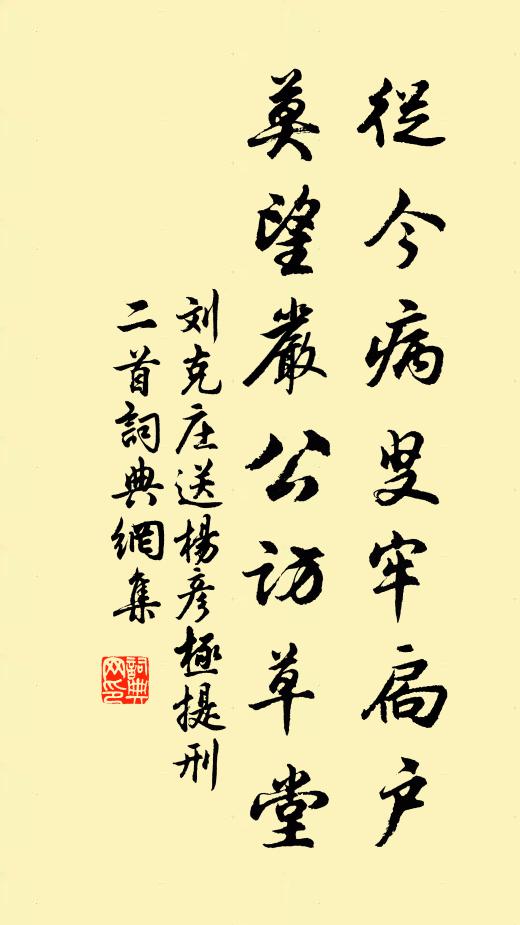 從今病叟牢扃户
莫望嚴公訪草堂
刘克庄送楊彦極提刑
二首詞典網集
詞典網印